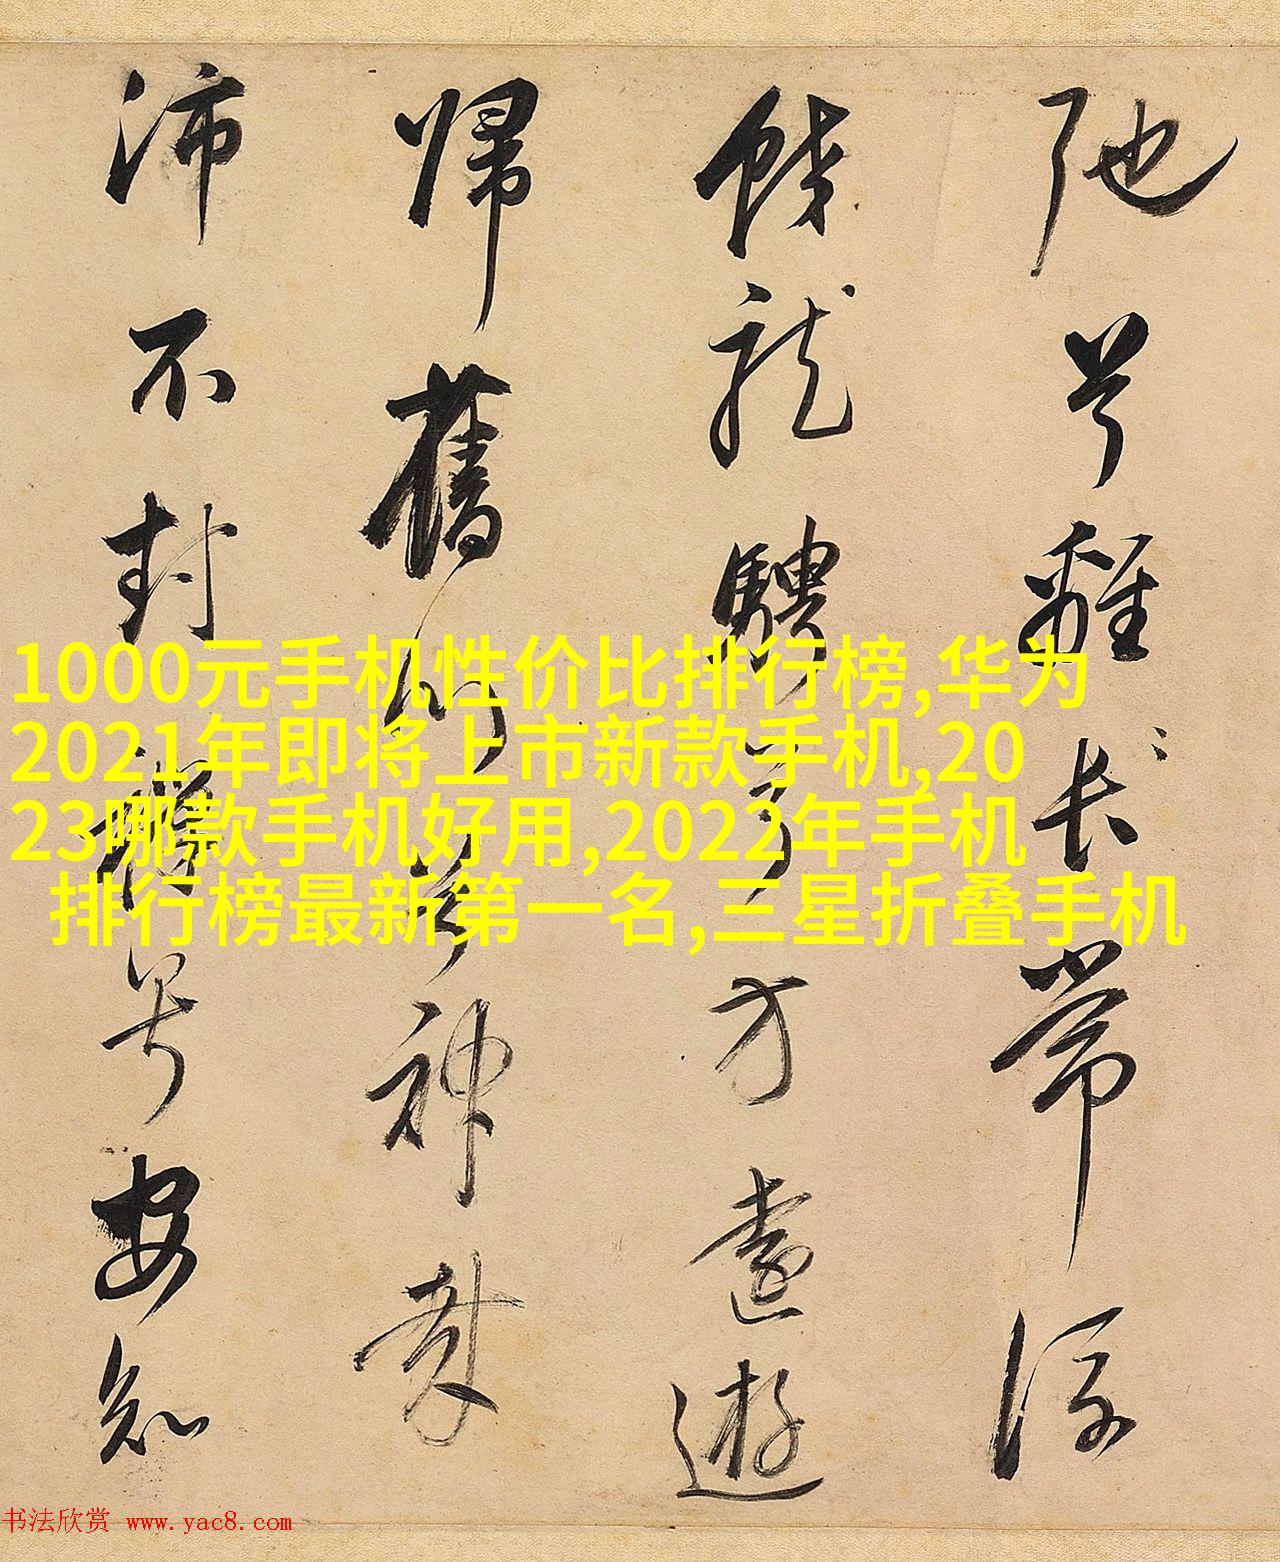 弛兮離長常流
蛟龍騁兮方遠遊
歸舊川兮神哉
沛不封禪兮安知
1000元手机性价比排行榜,华为
2021年即将上市新款手机,20
23哪款手机好用,2022年手机
排行榜最新第一名,三星折叠手机
书法欣赏 www.yac8.com